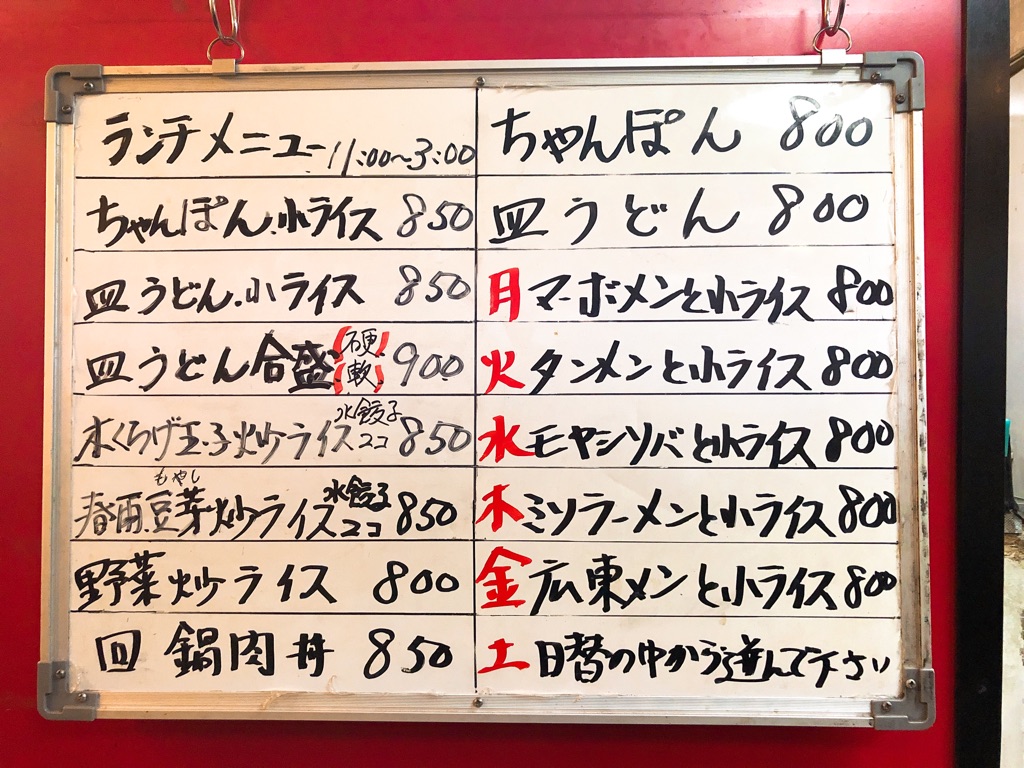 ランチメニュー 11:00～3:00
ちゃんぽん.小ライス 850
皿うどん.小ライス 850
皿うどん合盛(硬軟) 900
木くらげ玉子炒ライス 水餃子2コ 850
春雨.豆芽炒ライス もやし 水餃子2コ 850
野菜炒ライス 800
回鍋肉丼 850
ちゃんぽん 800
皿うどん 800
月 マーボメンと小ライス 800
火 タンメンと小ライス 800
水 モヤシソバと小ライス 800
木 ミソラーメンと小ライス 800
金 広東メンと小ライス 800
土 日替の中から選んで下さい